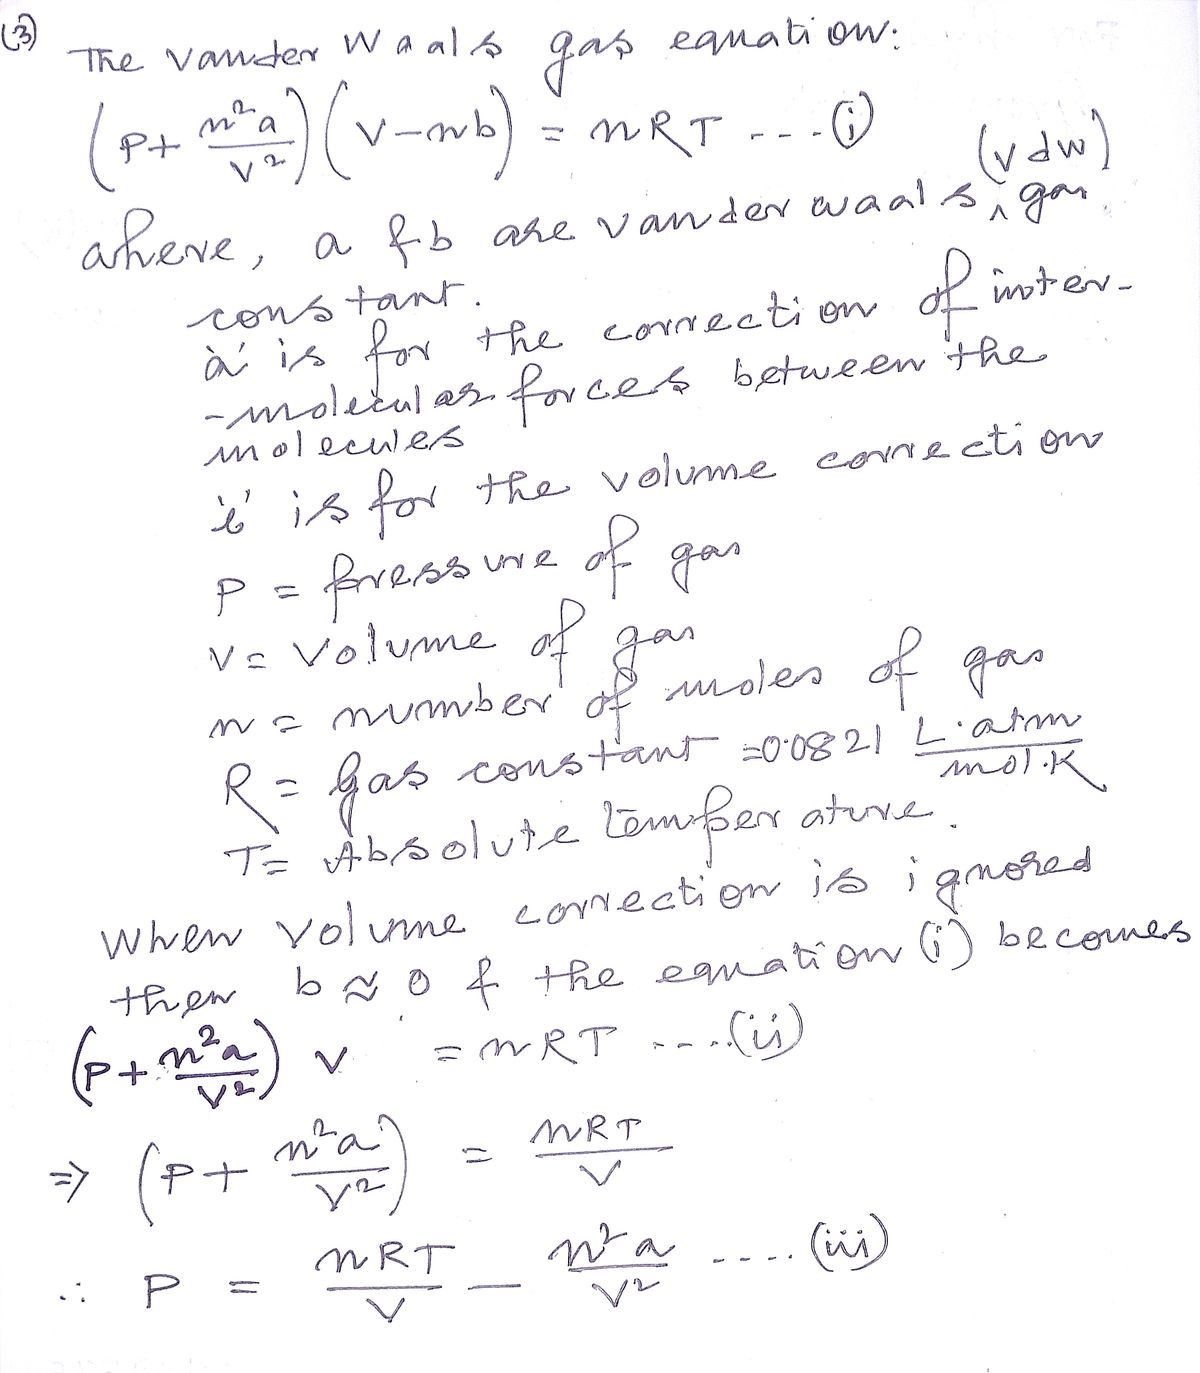 (3)
The Vander Waals gas equation:
(P + n²a/V²)(V-nb) = nRT ---(i)
(vdw)
where, a & b are vander waals ^ gas
constant.
'a' is for the correction of inter-
-molecular forces between the
molecules
'b' is for the volume correction
P = pressure of gas
V = Volume of gas
n = number of moles of gas
R = Gas constant = 0.0821 L.atm/mol.K
T = Absolute temperature.
When volume correction is ignored
then b ≈ 0 & the equation (i) becomes
(P + n²a/V²) V = nRT ----(ii)
⇒ (P + n²a/V²) = nRT/V
∴ P = nRT/V - n²a/V² ----(iii)